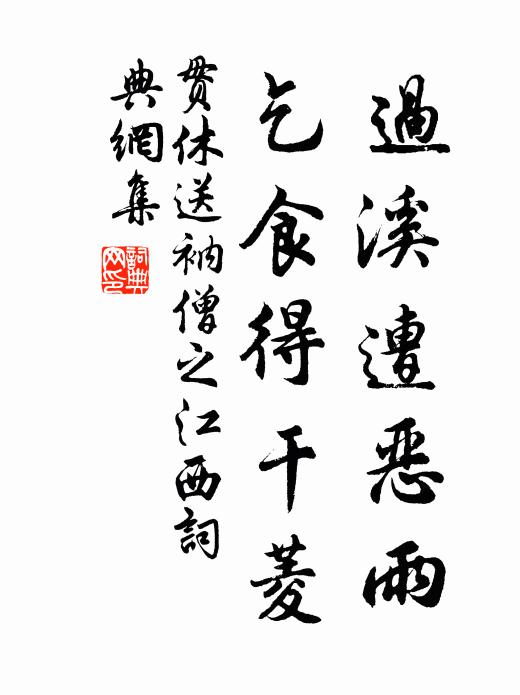 過溪遭惡雨
乞食得干菱
貫休送衲僧之江西詞
典網集
詞典
网印